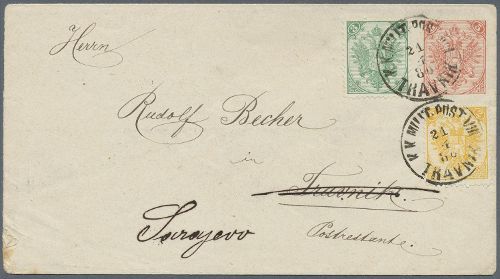 Herrn
Rudolf Becher
in
Travnik.
Sarajevo
Postrestante.
3
5
K.K. MILIT. POST VIII
21
TRAVNIK
K.K. MILIT. POST VIII
21
TRAVNIK